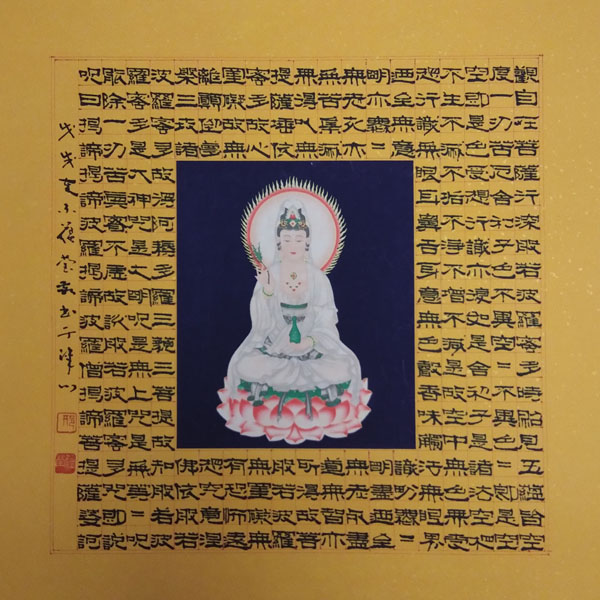 觀自在菩薩行深般若波羅蜜多時照見五蘊皆空
度一切苦厄舍利子色不異空二不異色二即是空
空即是色受想行識亦復如是舍利子是諸法空相
不生不滅不垢不淨不增不減是故空中無色無受
想行識無眼耳鼻舌身意無色聲香味觸法無眼界
乃至無意識界無二
明亦無二明盡乃至
無老死亦無老死盡
無苦集滅道無智亦
無得以無所得故菩
提薩埵依般若波羅
蜜多故心無罣礙無
罣礙故無有恐怖遠
離顛倒夢想究竟涅
槃三世諸佛依般若
波羅蜜多故得阿耨多羅三藐三菩提故知般若波
羅蜜多是大神咒是大明咒是無上咒是無等二咒
能除一切苦真實不虛故說般若波羅蜜多咒即說
咒曰揭諦揭諦波羅揭諦波羅僧揭諦菩提薩婆訶
戊戌夏書于津门